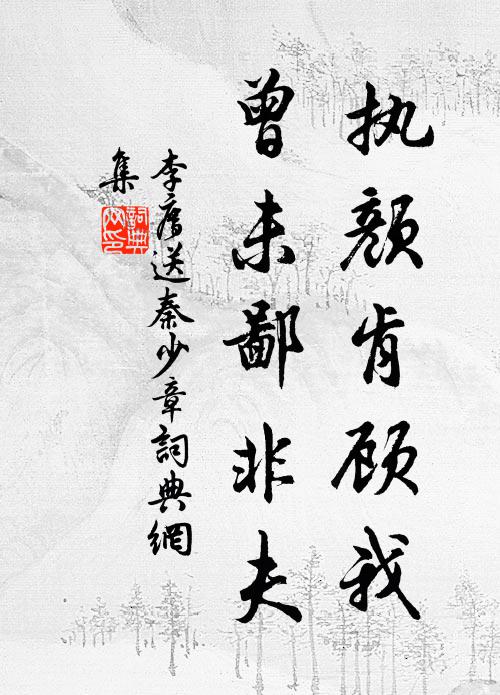 执颜肯顾我
曾未鄙非夫
李廌送秦少章詞典網
集
詞典网印